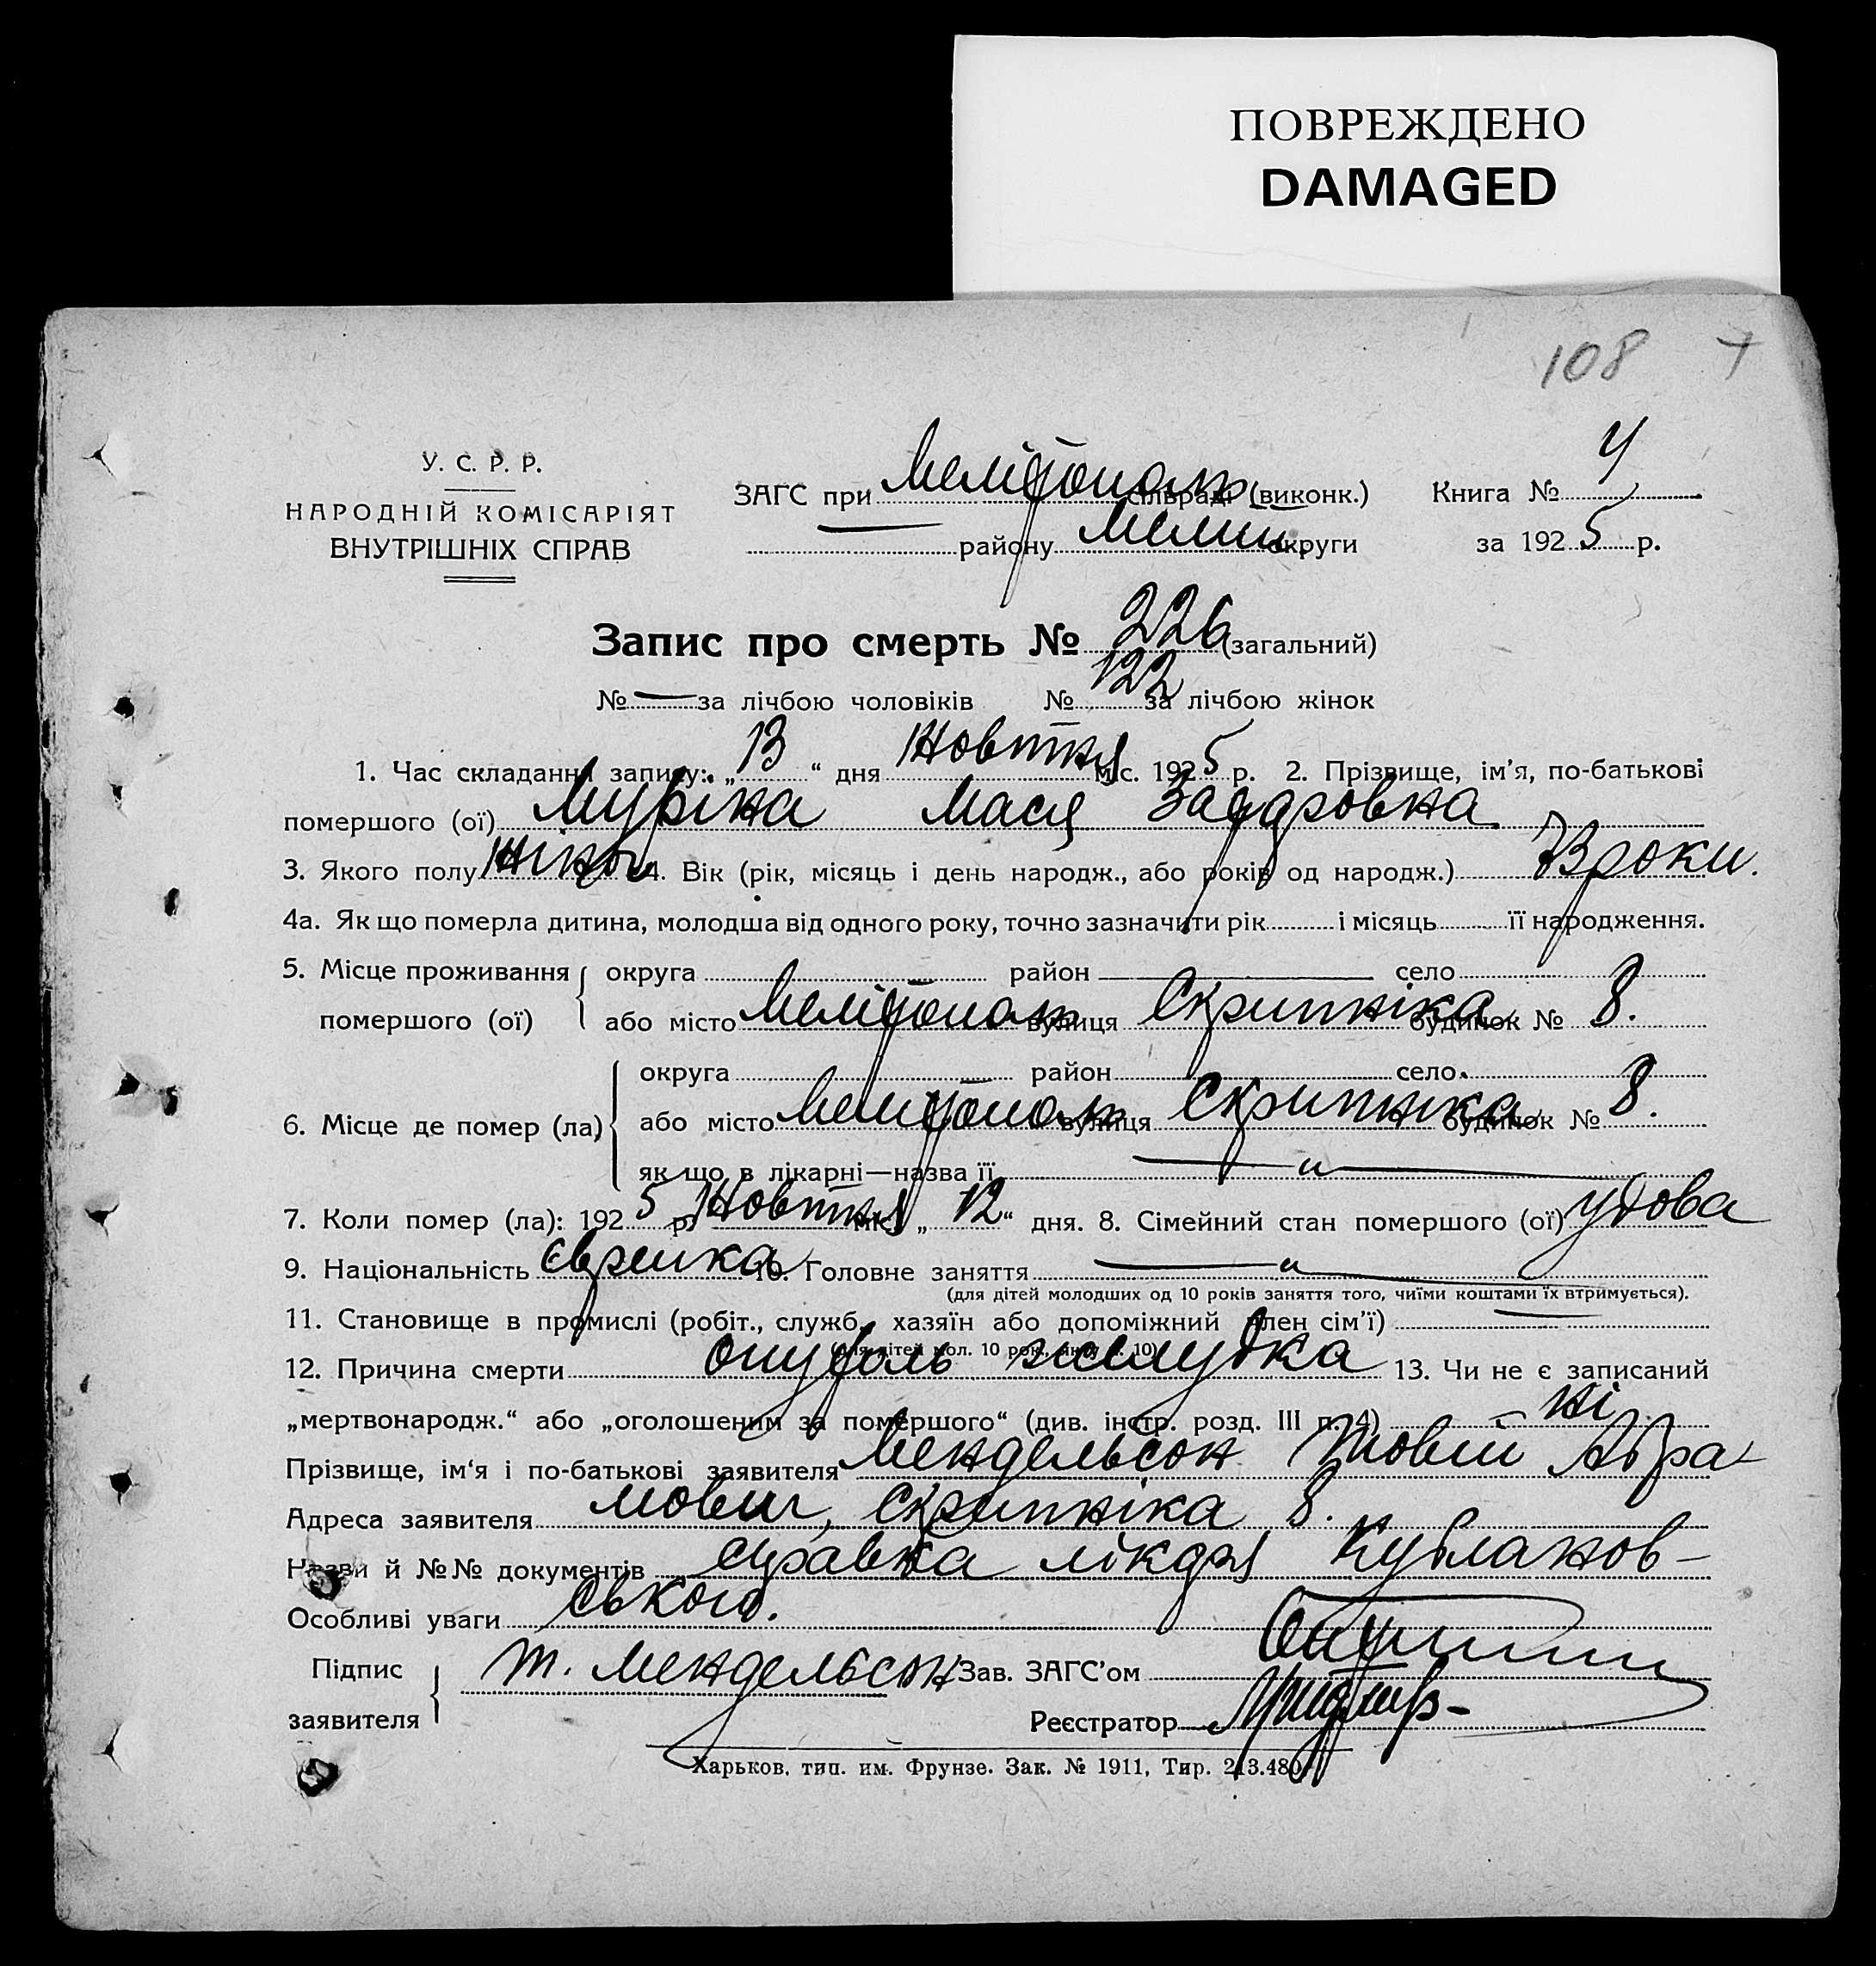 ПОВРЕЖДЕНО
DAMAGED
108
У. С. Р. Р.
НАРОДНІЙ КОМІСАРІЯТ
ВНУТРІШНІХ СПРАВ
ЗАГС при Мелітополь сільраді (виконк.)
району Мелит. округи
Книга № 4
за 1925 р.
Запис про смерть № 226 (загальний)
№ — за лічбою чоловіків № 122 за лічбою жінок
1. Час складання запису: „13“ дня Жовтня міс. 1925 р. 2. Прізвище, ім'я, по-батькові
помершого (ої) Мася
3. Якого полу 4. Вік (рік, місяць і день народж., або років од народж.) 73 роки.
4а. Як що померла дитина, молодша від одного року, точно зазначити рік і місяць її народження.
5. Місце проживання помершого (ої) округа район — село
або місто Мелітополь вулиця Скрипніка будинок № 8.
6. Місце де помер (ла) округа район село
або місто Мелітополь вулиця Скрипника будинок № 8.
як що в лікарні—назва її — „ —
7. Коли помер (ла): 1925 р. Жовтня міс. „12“ дня. 8. Сімейний стан помершого (ої) удова
9. Національність єврейка 10. Головне заняття — „ —
(для дітей молодших од 10 років заняття того, чиїми коштами їх втримується).
11. Становище в промислі (робіт., служб., хазяїн або допоміжний член сім'ї) —
(для дітей мол. 10 рок., як у п. 10)
12. Причина смерти опухоль желудка 13. Чи не є записаний
„мертвонародж.“ або „оголошеним за помершого“ (див. інстр. розд. III п. 4) ні
Прізвище, ім'я і по-батькові заявителя Мендельсон Товий Абра-
Адреса заявителя мович, Скрипніка 8.
Назви й №№ документів справка лікаря Кубланов-
Особливі уваги ського.
Підпис заявителя Т. Мендельсон Зав. ЗАГС'ом
Реєстратор
Харьков. тип. им. Фрунзе. Зак. № 1911, Тир. 213.480